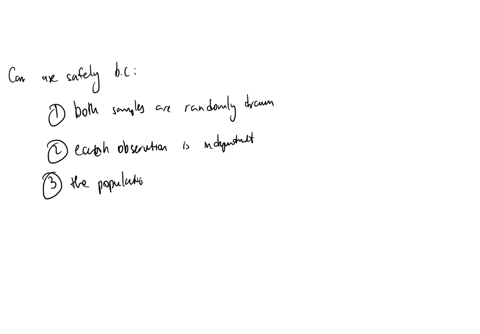 Can use safely b.c:
① both samples are randomly drawn
② each observation is independent
③ the populatio